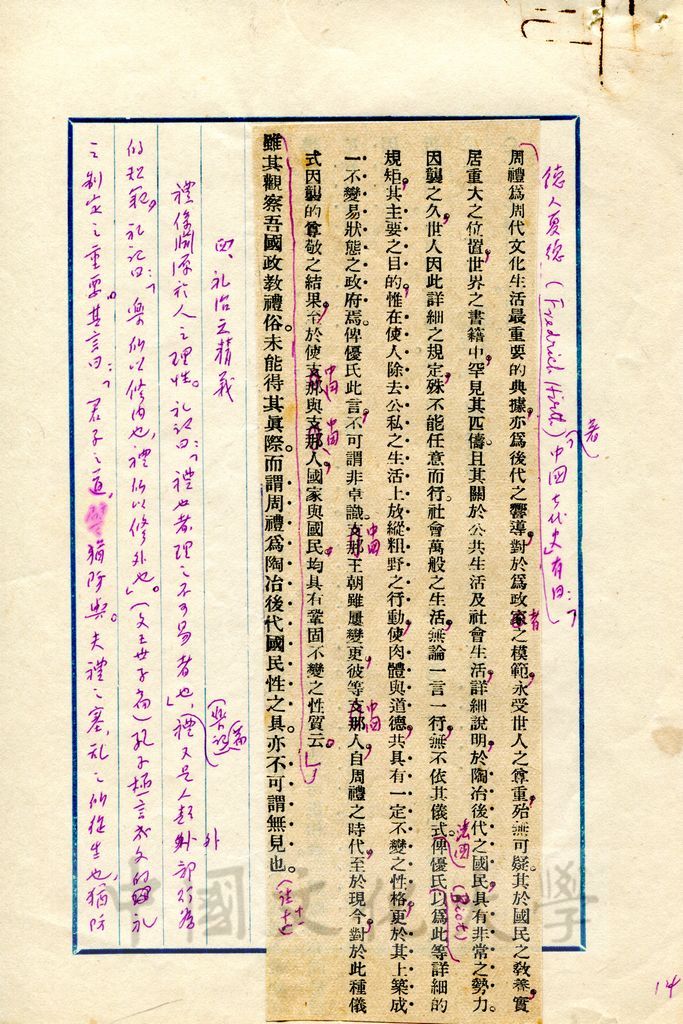 德人夏德(Friedrich Hirth)著「中國古代史」有曰:「
周禮爲周代文化生活最重要的典據,亦爲後代之嚮導,對於爲政家者之模範,永受世人之尊重,殆無可疑。其於國民之敎養,實
居重大之位置,世界之書籍中,罕見其匹儔。且其關於公共生活及社會生活,詳細說明,於陶冶後代之國民,具有非常之勢力。
因襲之久,世人因此詳細之規定,殊不能任意而行。社會萬般之生活,無論一言一行,無不依其儀式。法國俾優氏(Biot)以爲此等詳細的
規矩,其主要之目的,惟在使人除去公私之生活上放縱粗野之行動,使肉體與道德,共具有一定不變之性格,更於其上築成
一不變易狀態之政府焉。俾優氏此言,不可謂非卓識。支那中國王朝雖屢變更,彼等支那中國人自周禮之時代,至於現今,對於此種儀
式因襲的尊敬之結果,至於使支那中國與支那中國人,國家與國民,均具有鞏固不變之性質云。」
雖其觀察吾國政教禮俗,未能得其眞際,而謂周禮爲陶冶後代國民性之具,亦不可謂無見也。(註十一)
四、礼治之精義
禮儀淵源於人之理性。礼記曰:「禮也者理之不可易者也」(樂記篇),禮又是人對外部行爲
的規範,礼記曰:「樂所以修內也,禮所以修外也。」(文王世子篇)孔子極言成文的礼
之制定之重要,其言曰:「君子之道,猶防與。夫禮之塞,乱之所從生也,猶防
14
中國文化大學